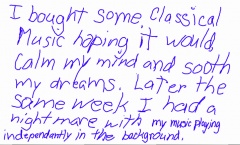 I bought some Classical
Music hoping it would
Calm my mind and sooth
my dreams. Later the
same week I had a
nightmare with my music playing
independantly in the background.